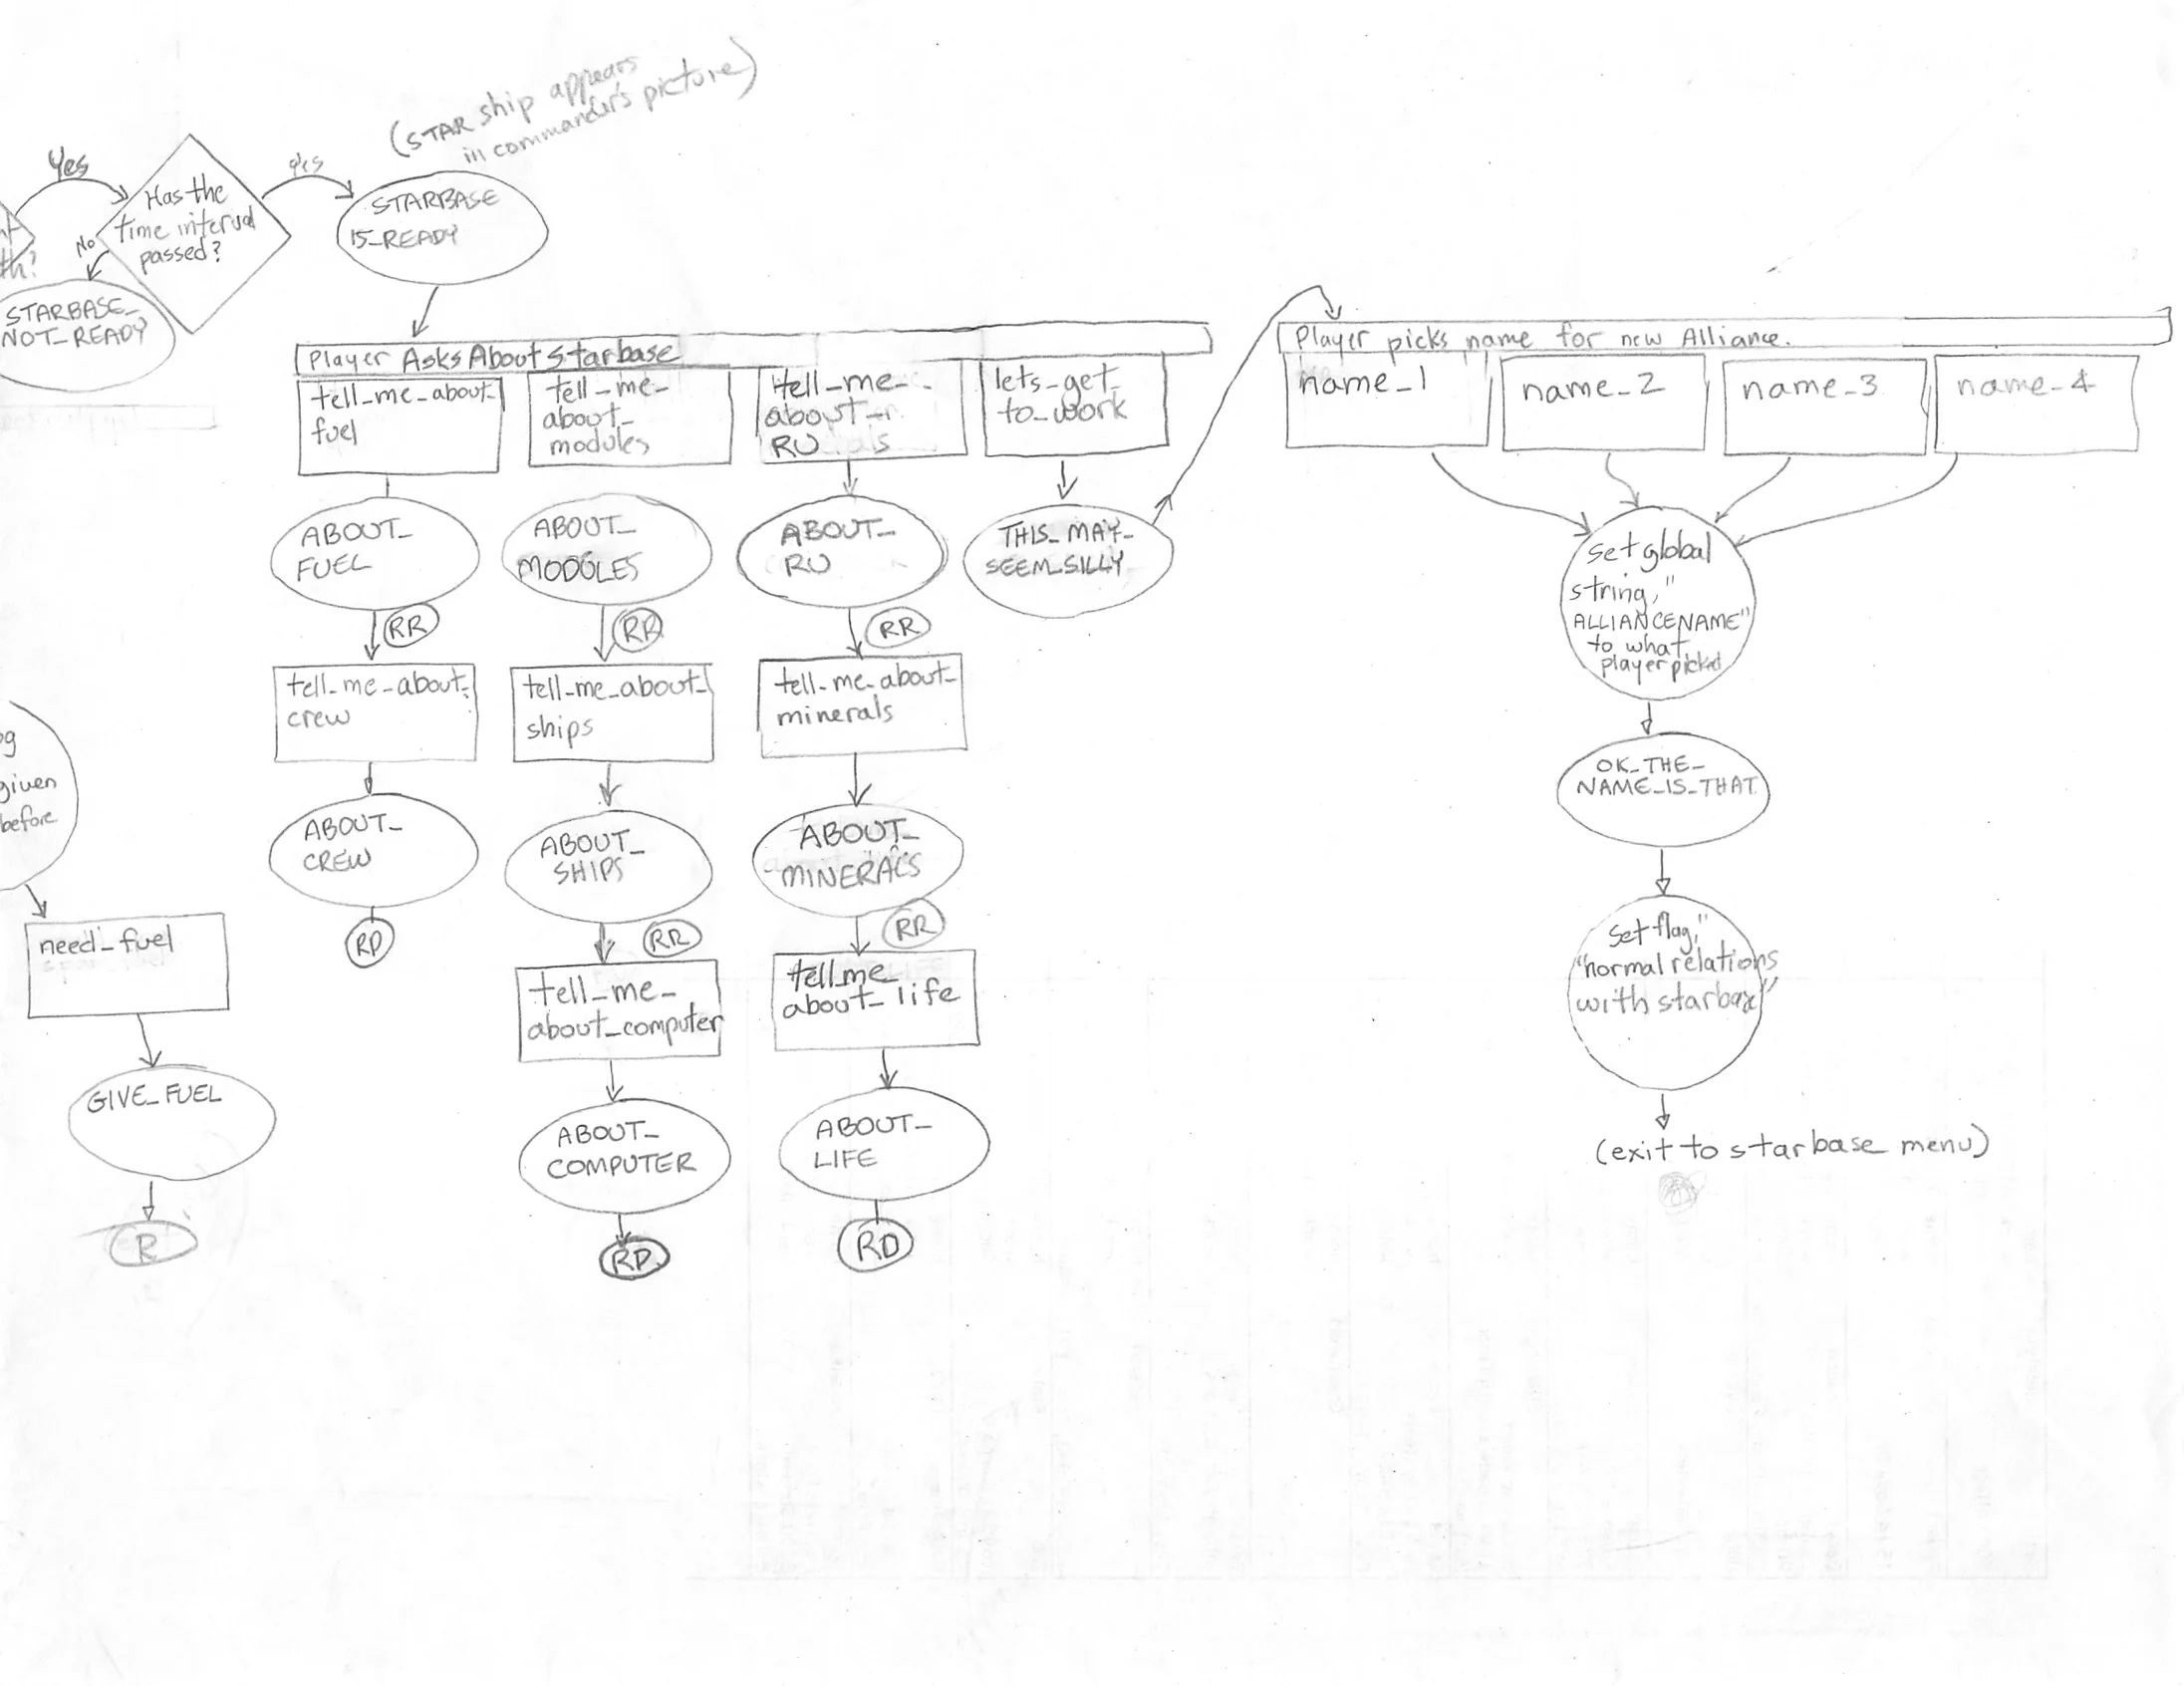 (STAR ship appears
in commander's picture)
Yes
Has the
time interval
passed?
yes
No
th?
STARBASE_
NOT_READY
STARBASE
IS_READY
Player Asks About Starbase
tell_me_about_
fuel
tell_me_
about_
modules
tell_me_
about_
RU
lets_get_
to_work
ABOUT_
FUEL
ABOUT_
MODULES
ABOUT_
RU
THIS_MAY_
SEEM_SILLY
RR
RR
RR
tell_me_about_
crew
tell_me_about_
ships
tell_me_about_
minerals
ABOUT_
CREW
ABOUT_
SHIPS
ABOUT_
MINERALS
RP
RR
RR
tell_me_
about_computer
tell_me
about_life
ABOUT_
COMPUTER
ABOUT_
LIFE
RP
RD
given
before
need_fuel
GIVE_FUEL
R
Player picks name for new Alliance.
name_1
name_2
name_3
name_4
Set global
string,"
ALLIANCENAME"
to what
player picked
OK_THE_
NAME_IS_THAT
Set flag,"
"normal relations
with starbase"
(exit to starbase menu)